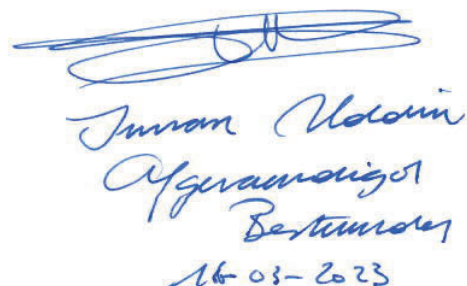 Imran Uddin
Afgevaardigd
Bestuurder
16-03-2023